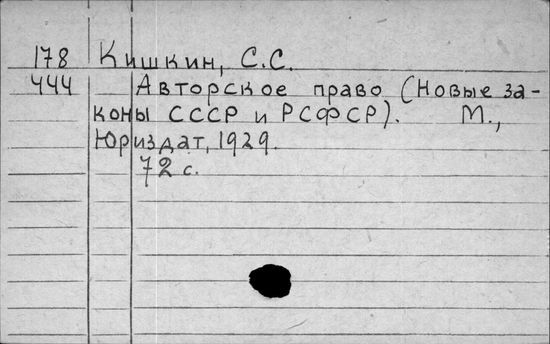 178 Кишкин, С.С.
444 Авторское право (Новые за-
коны СССР и РСФСР). М.,
Юриздат, 1929.
72 с.